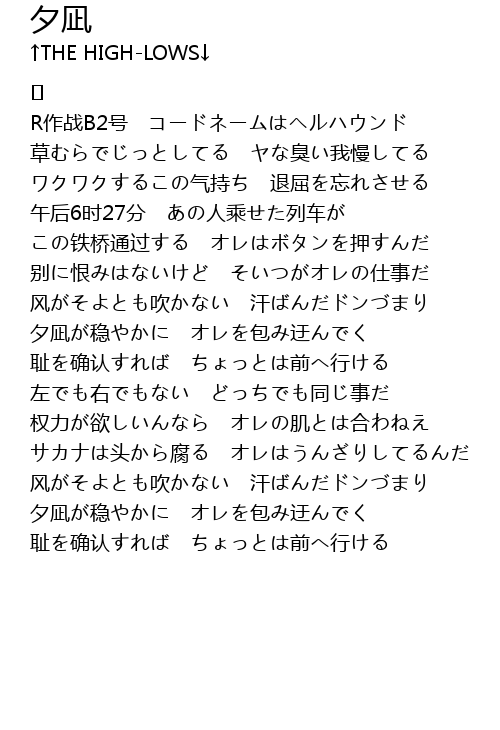 夕凪
↑THE HIGH-LOWS↓
[]
R作战B2号　コードネームはヘルハウンド
草むらでじっとしてる　ヤな臭い我慢してる
ワクワクするこの气持ち　退屈を忘れさせる
午后6时27分　あの人乘せた列车が
この铁桥通过する　オレはボタンを押すんだ
别に恨みはないけど　そいつがオレの仕事だ
风がそよとも吹かない　汗ばんだドンづまり
夕凪が稳やかに　オレを包み迂んでく
耻を确认すれば　ちょっとは前へ行ける
左でも右でもない　どっちでも同じ事だ
权力が欲しいんなら　オレの肌とは合わねえ
サカナは头から腐る　オレはうんざりしてるんだ
风がそよとも吹かない　汗ばんだドンづまり
夕凪が稳やかに　オレを包み迂んでく
耻を确认すれば　ちょっとは前へ行ける